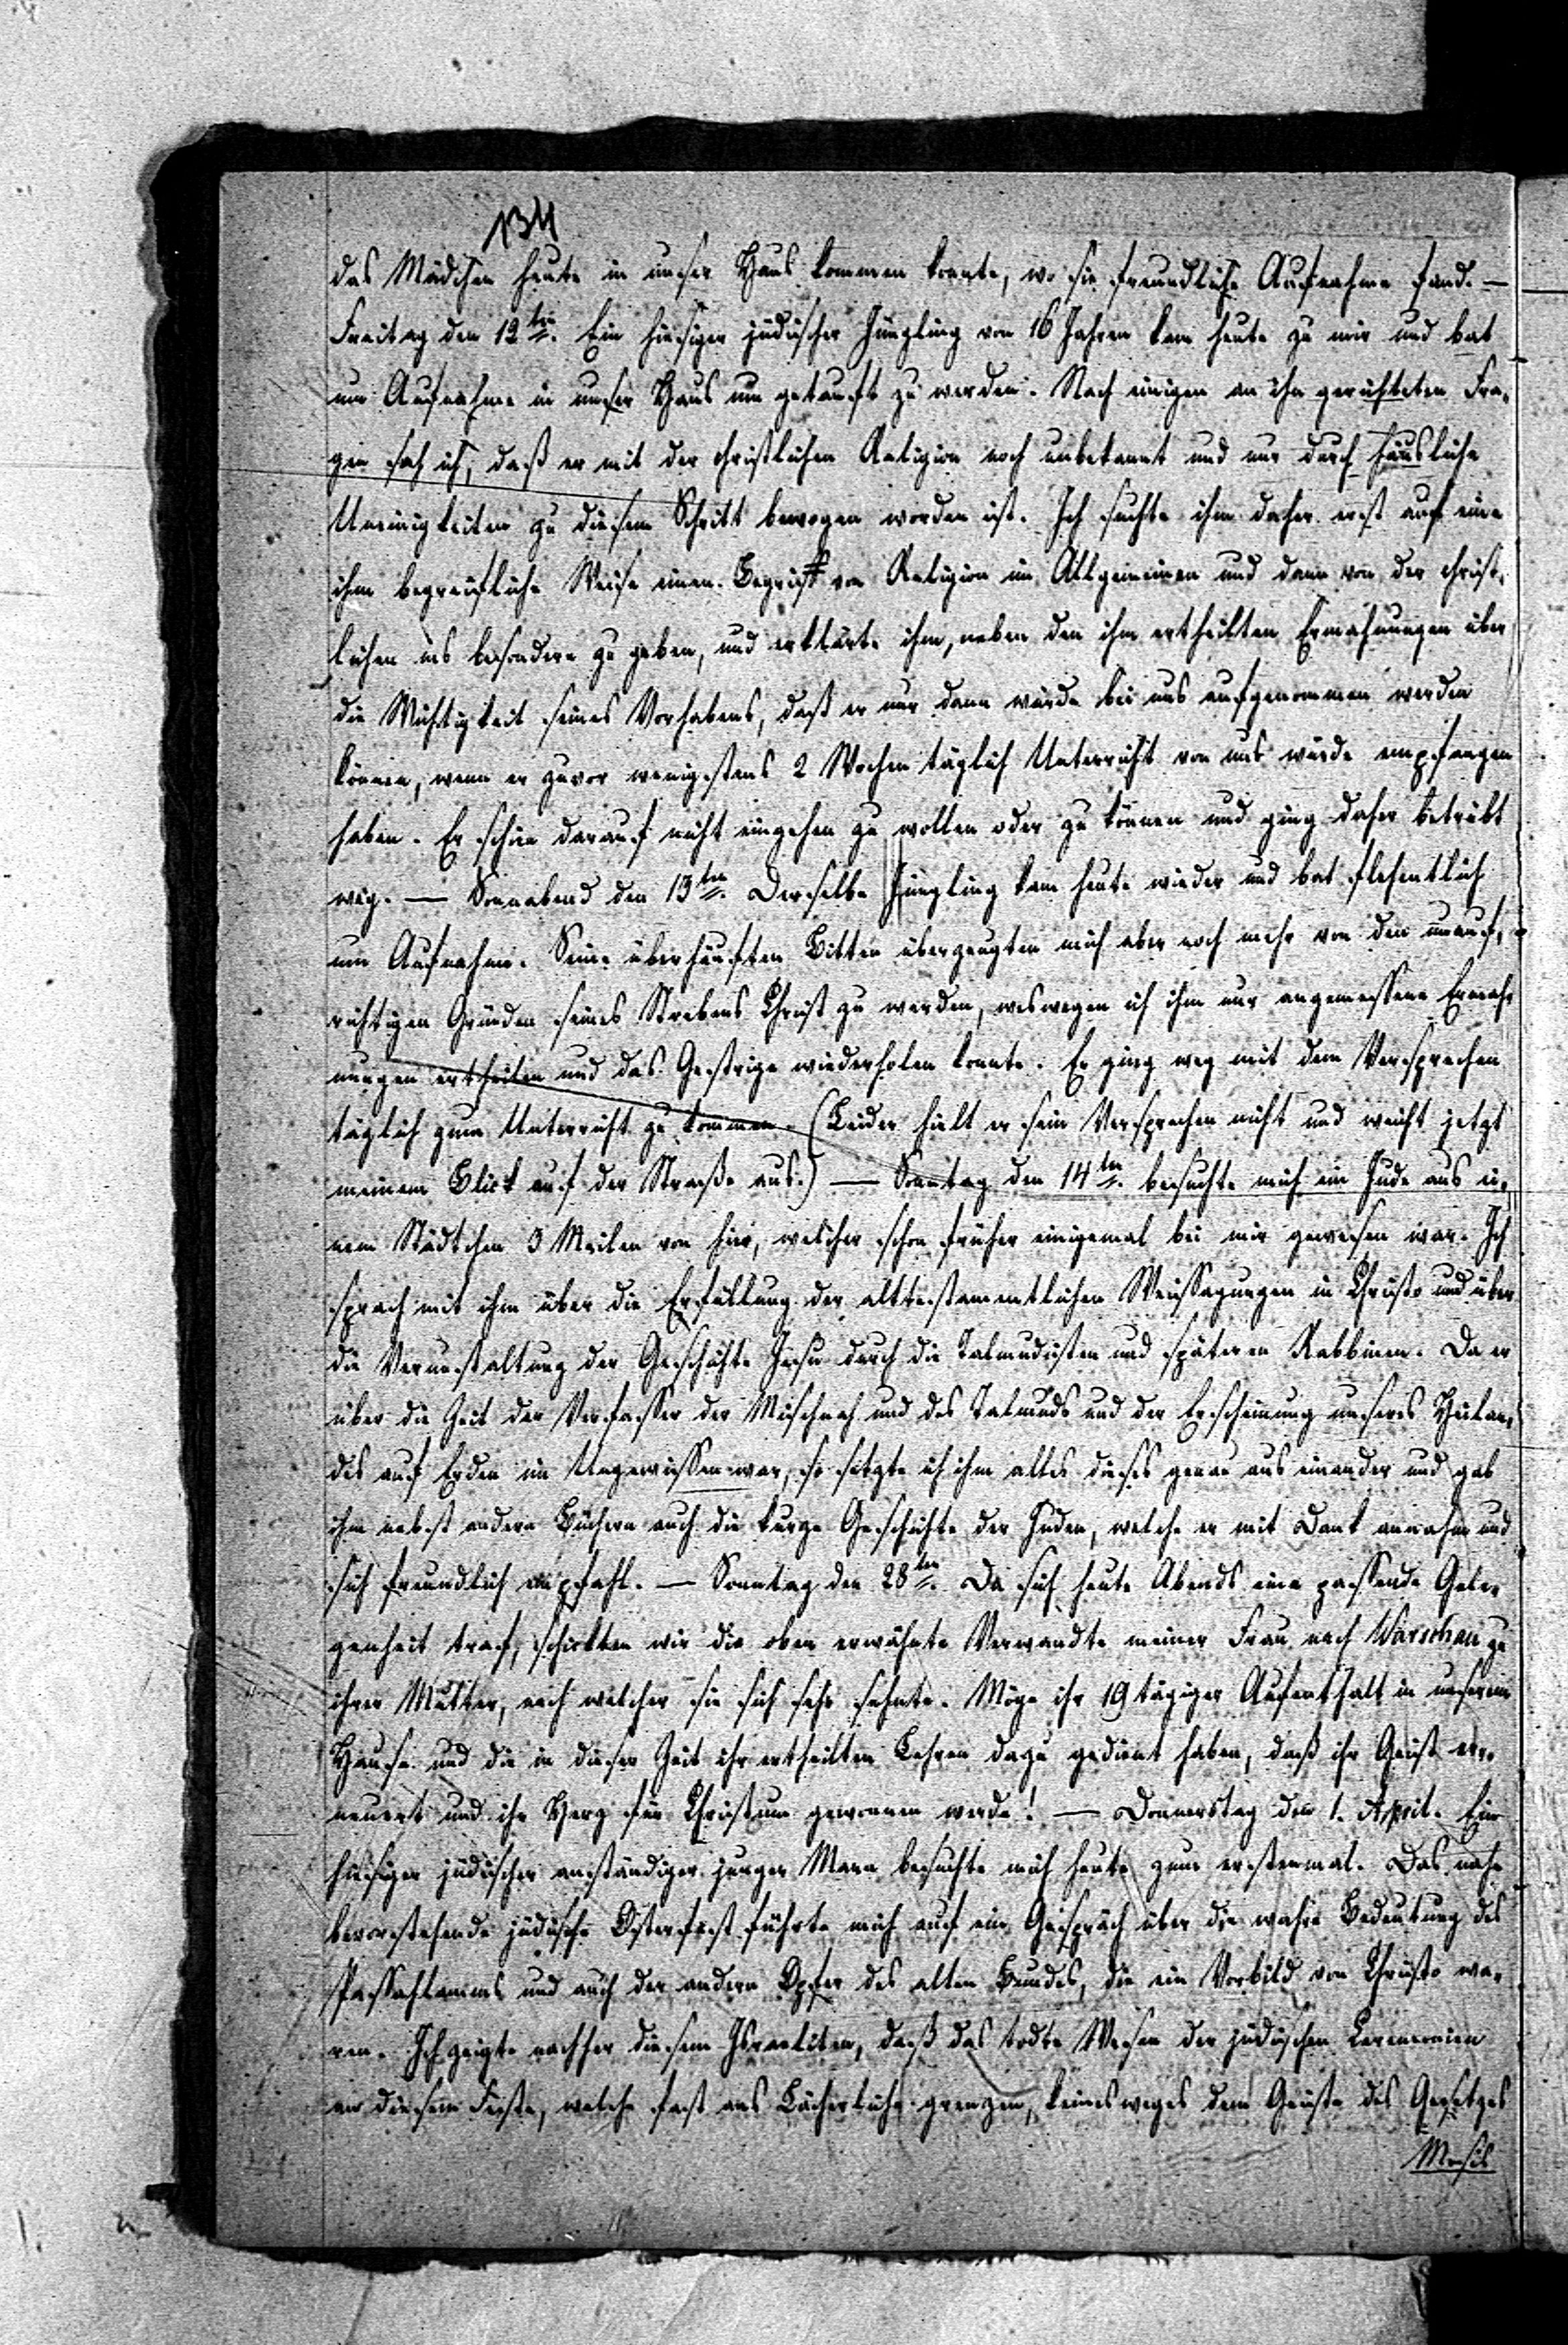 134
das Mädchen heute in unser Haus kommen konnte, wo sie freundliche Aufnahme fand. —
Freitag den 12ten. Ein hiesiger jüdischer Jüngling von 16 Jahren kam heute zu mir und bat
um Aufnahme in unser Haus um getauft zu werden. Nach einigen an ihn gerichteten Fra-
gen sah ich, daß er mit der christlichen Religion noch unbekannt und nur durch häusliche
Uneinigkeiten zu diesem Schritt bewogen worden ist. Ich suchte ihm daher erst auf eine
ihm begreifliche Weise einen Begriff von Religion im Allgemeinen und dann von der christ-
lichen ins besondere zu geben, und erklärte ihm, neben den ihm ertheilten Ermahnungen über
die Wichtigkeit seines Vorhabens, daß er nur dann würde bei uns aufgenommen werden
können, wenn er zuvor wenigstens 2 Wochen täglich Unterricht von uns würde empfangen
haben. Er schien darauf nicht eingehen zu wollen oder zu können und ging daher betrübt
weg. — Sonnabend den 13ten. Derselbe Jüngling kam heute wieder und bat flehentlich
um Aufnahme. Seine überhäuften Bitten überzeugten mich aber noch mehr von den unauf-
richtigen Gründen seines Strebens Christ zu werden, weswegen ich ihm nur angemessene Ermah-
nungen ertheilen und das Gestrige wiederholen konnte. Er ging weg mit dem Versprechen
täglich zum Unterricht zu kommen. (Leider hielt er sein Versprechen nicht und weicht jetzt
meinem Blick auf der Straße aus.) — Sonntag den 14ten. besuchte mich ein Jude aus ei-
nem Städtchen 3 Meilen von hier, welcher schon früher einigemal bei mir gewesen war. Ich
sprach mit ihm über die Erfüllung der alttestamentlichen Weissagungen in Christo und über
die Verunstaltung der Geschichte Jesu durch die Talmudisten und späteren Rabbinen. Da er
über die Zeit der Verfasser der Mischnah und des Talmuds und der Erscheinung unseres Heilan-
des auf Erden im Ungewissen war, so setzte ich ihm alles dieses genau aus einander und gab
ihm nebst andern Büchern auch die kurze Geschichte der Juden, welche er mit Dank annahm und
sich freundlich empfahl. — Sonntag den 28ten. Da sich heute Abends eine passende Gele-
genheit traf, schickten wir die oben erwähnte Verwandte meiner Frau nach Warschau zu
ihrer Mutter, nach welcher sie sich sehr sehnte. Möge ihr 19 tägiger Aufenthalt in unserem
Hause und die in dieser Zeit ihr ertheilten Lehren dazu gedient haben, daß ihr Geist er-
neuert und ihr Herz für Christum gewonnen werde! — Donnerstag den 1. April. Ein
hiesiger jüdischer anständiger junger Mann besuchte mich heute zum erstenmal. Das nahe
bevorstehende jüdische Osterfest führte mich auf ein Gespräch über die wahre Bedeutung des
Passahlamms und auch der andern Opfer des alten Bundes, die ein Vorbild von Christo wa-
ren. Ich zeigte nachher diesem Israeliten, daß das todte Wesen der jüdischen Ceremonien
an diesem Feste, welche fast ans Lächerliche grenzen, keinesweges dem Geiste des Gesetzes